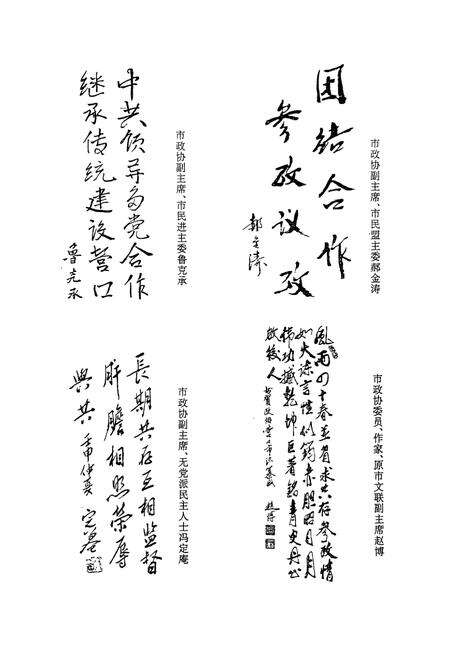 市政协副主席、市民盟主委郝金涛
团结合作
参政议政
郝金涛
市政协副主席、市民进主委鲁克承
中共领导多党合作
继承传统建设营口
鲁克承
市政协委员、作家、原市文联副主席赵博
風雨四十春並肩求共存参政情
如火诤言性似筠赤胆昭日月
伟功撼乾坤巨著铭青史丹心
启後人
赵博
市政协副主席、无党派民主人士冯定庵
長期共存互相监督
肝膽相照荣辱
與共 壬申仲夏 定菴